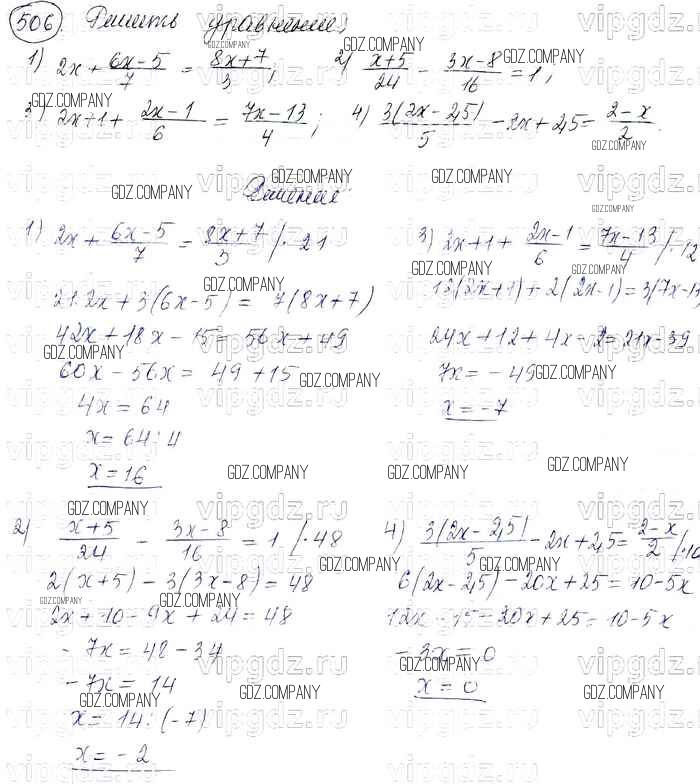 506. Решить уравнение:
1) 2x + (6x-5)/7 = (8x+7)/3; 2) (x+5)/24 - (3x-8)/16 = 1;
3) 2x+1 + (2x-1)/6 = (7x-13)/4; 4) 3(2x-2,5)/5 - 2x+2,5 = (2-x)/2.
Решение:
1) 2x + (6x-5)/7 = (8x+7)/3 /·21
21·2x + 3(6x-5) = 7(8x+7)
42x + 18x - 15 = 56x + 49
60x - 56x = 49 + 15
4x = 64
x = 64 : 4
x = 16
3) 2x+1 + (2x-1)/6 = (7x-13)/4 /·12
12(2x+1) + 2(2x-1) = 3(7x-13
24x+12+4x-2=21x-39
7x = -49
x = -7
2) (x+5)/24 - (3x-8)/16 = 1 /·48
2(x+5) - 3(3x-8) = 48
2x + 10 - 9x + 24 = 48
-7x = 48 - 34
-7x = 14
x = 14 : (-7)
x = -2
4) 3(2x-2,5)/5 - 2x+2,5 = (2-x)/2 /·10
6(2x-2,5) - 20x+25 = 10-5x
12x - 15 - 20x + 25 = 10-5x
-3x = 0
x = 0
GDZ.COMPANY
vipgdz.ru